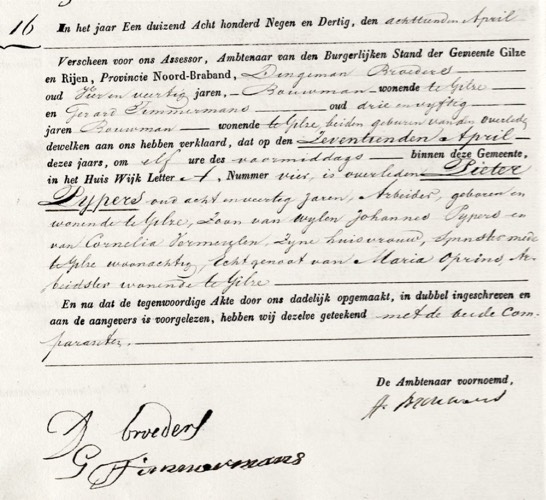 16
In het jaar Een duizend Acht honderd Negen en Dertig, den achttienden April
Verscheen voor ons Assessor, Ambtenaar van den Burgerlijken Stand der Gemeente Gilze
en Rijen, Provincie Noord-Braband, Dingeman Broeders
oud Vier en veertig jaren, Bouwman wonende te Gilze
en Gerard Timmermans oud drie en vyftig
jaren Bouwman wonende te Gilze, beiden geburen van den overledenen
dewelken aan ons hebben verklaard, dat op den Zeventienden April
dezes jaars, om elf ure des voormiddags binnen deze Gemeente,
in het Huis Wijk Letter A, Nummer vier, is overleden Pieter
Pypers oud acht en veertig jaren, Arbeider, geboren en
wonende te Gilze, Zoon van wylen Johannes Pypers en
van Cornelia Vermeulen, Zyne huisvrouw, Spinster mede
te Gilze woonachtig, Echtgenoot van Maria Oprins, Ar-
beidster wonende te Gilze
En na dat de tegenwoordige Akte door ons dadelijk opgemaakt, in dubbel ingeschreven en
aan de aangevers is voorgelezen, hebben wij dezelve geteekend met de beide Com-
paranten.
De Ambtenaar voornoemd,
D broeders
G Timmermans